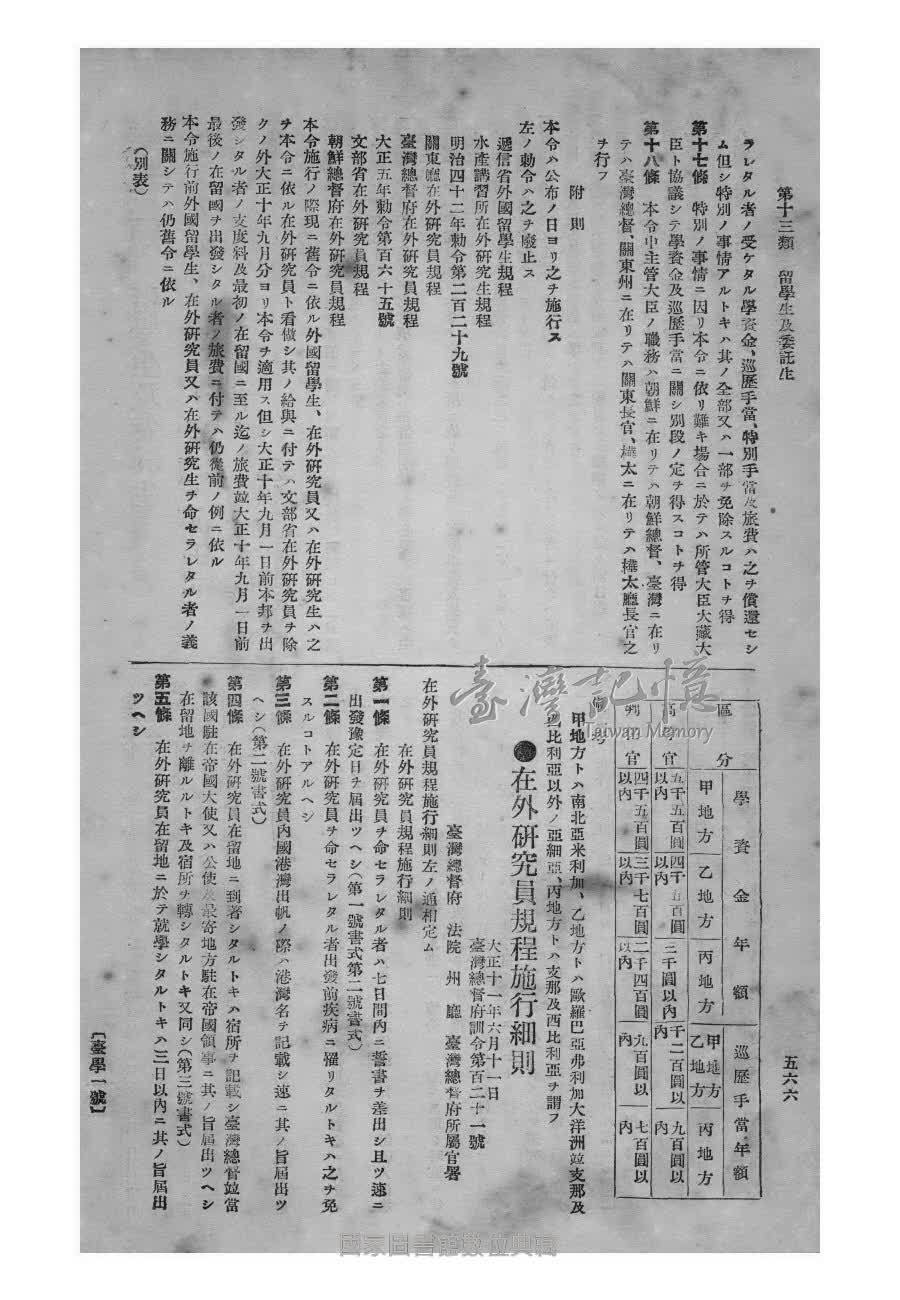 第十三類　留學生及委託生
五六六
ラレタル者ノ受ケタル學資金、巡歷手當、特別手當及旅費ハ之ヲ償還セシ
ム但シ特別ノ事情アルトキハ其ノ全部又ハ一部ヲ免除スルコトヲ得
第十七條　特別ノ事情ニ因リ本令ニ依リ難キ場合ニ於テハ所管大臣大藏大
臣ト協議シテ學資金及巡歷手當ニ關シ別段ノ定ヲ得スコトヲ得
第十八條　本令中主管大臣ノ職務ハ朝鮮ニ在リテハ朝鮮總督、臺灣ニ在リ
テハ臺灣總督、關東州ニ在リテハ關東長官、樺太ニ在リテハ樺太廳長官之
ヲ行フ
附　則
本令ハ公布ノ日ヨリ之ヲ施行ス
左ノ勅令ハ之ヲ廢止ス
遞信省外國留學生規程
水產講習所在外硏究生規程
明治四十二年勅令第二百二十九號
關東廳在外硏究員規程
臺灣總督府在外硏究員規程
大正五年勅令第百六十五號
文部省在外硏究員規程
朝鮮總督府在外硏究員規程
本令施行ノ際現ニ舊令ニ依ル外國留學生、在外硏究員又ハ在外硏究生ハ之
ヲ本令ニ依ル在外硏究員ト看做シ其ノ給與ニ付テハ文部省在外硏究員ヲ除
クノ外大正十年九月分ヨリ本令ヲ適用ス但シ大正十年九月一日前本邦ヲ出
發シタル者ノ支度料及最初ノ在留國ニ至ル迄ノ旅費竝大正十年九月一日前
最後ノ在留國ヲ出發シタル者ノ旅費ニ付テハ仍從前ノ例ニ依ル
本令施行前外國留學生、在外硏究員又ハ在外硏究生ヲ命セラレタル者ノ義
務ニ關シテハ仍舊令ニ依ル
（別表）
區分　學資金年額　巡歷手當年額
甲地方　乙地方　丙地方　甲地方乙地方　丙地方
官　五千五百圓以內　四千五百圓以內　三千圓以內　千二百圓以內　九百圓以內
官　四千五百圓以內　三千七百圓以內　二千四百圓以內　九百圓以內　七百圓以內
甲地方トハ南北亞米利加、乙地方トハ歐羅巴亞弗利加大洋洲竝支那及
西比利亞以外ノ亞細亞、丙地方トハ支那及西比利亞ヲ謂フ
●在外硏究員規程施行細則
大正十一年六月十一日
臺灣總督府訓令第百二十一號
臺灣總督府　法院　州　廳　臺灣總督府所屬官署
在外硏究員規程施行細則左ノ通相定ム
在外硏究員規程施行細則
第一條　在外硏究員ヲ命セラレタル者ハ七日間內ニ誓書ヲ差出シ且ツ速ニ
出發豫定日ヲ屆出ツヘシ（第一號書式第二號書式）
第二條　在外硏究員ヲ命セラレタル者出發前疾病ニ罹リタルトキハ之ヲ免
スルコトアルヘシ
第三條　在外硏究員內國港灣出帆ノ際ハ港灣名ヲ記載シ速ニ其ノ旨屆出ツ
ヘシ（第二號書式）
第四條　在外硏究員在留地ニ到著シタルトキハ宿所ヲ記載シ臺灣總督竝當
該國駐在帝國大使又ハ公使及最寄地方駐在帝國領事ニ其ノ旨屆出ツヘシ
在留地ヲ離ルルトキ及宿所ヲ轉シタルトキ又同シ（第三號書式）
第五條　在外硏究員在留地ニ於テ就學シタルトキハ三日以內ニ其ノ旨屆出
ツヘシ
〔臺學一號〕
臺灣記憶
Taiwan Memory
國家圖書館數位典藏